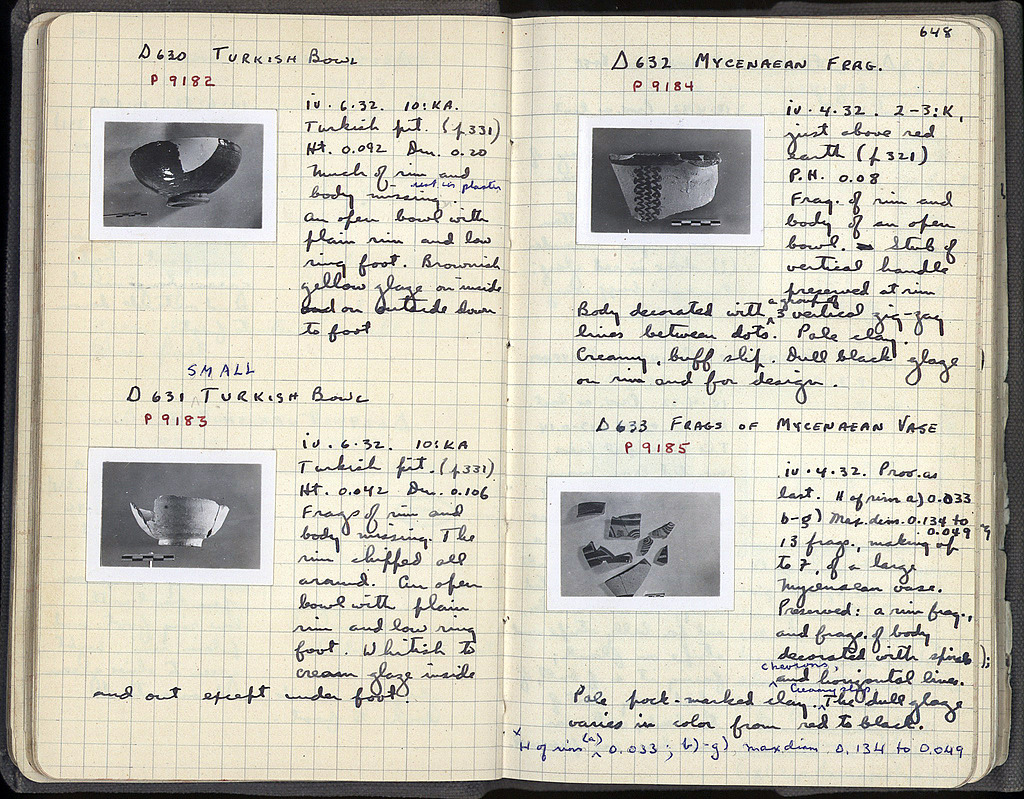 Δ630 TURKISH BOWL
P 9182
iv. 6.32. 10:KA.
Turkish pit. (p331)
Ht. 0.092 Dm. 0.20
Much of rim and
body missing - rest in plaster
an open bowl with
plain rim and low
ring foot. Brownish
yellow glaze on inside
and on outside down
to foot
SMALL
Δ 631 TURKISH BOWL
P 9183
iv. 6.32. 10:KA
Turkish pit. (p331)
Ht. 0.042 Dm. 0.106
Frags of rim and
body missing. The
rim chipped all
around. An open
bowl with plain
rim and low ring
foot. Whitish to
cream glaze inside
and out except under foot.
648
Δ632 MYCENAEAN FRAG.
P 9184
iv. 4.32. 2-3:K,
just above red
earth (p321)
P.H. 0.08
Frag. of rim and
body of an open
bowl. Stub of
vertical handle
preserved at rim
Body decorated with a group of 3 vertical zig-zag
lines between dots. Pale clay.
Creamy, buff slip. Dull black glaze
on rim and for design.
Δ633 FRAGS OF MYCENAEAN VASE
P 9185
iv. 4.32. Prov. as
last. H of rim a) 0.033
b-g) Max. dim. 0.134 to
0.049
13 frags., making up
to 7, of a large
Mycenaean vase.
Preserved: a rim frag.,
and frags. of body
decorated with spirals,
chevrons,
and horizontal lines.
Creamy slip.
Pale pock-marked clay. The dull glaze
varies in color from red to black.
x H of rim (a) 0.033; b)-g) max. dim 0.134 to 0.049